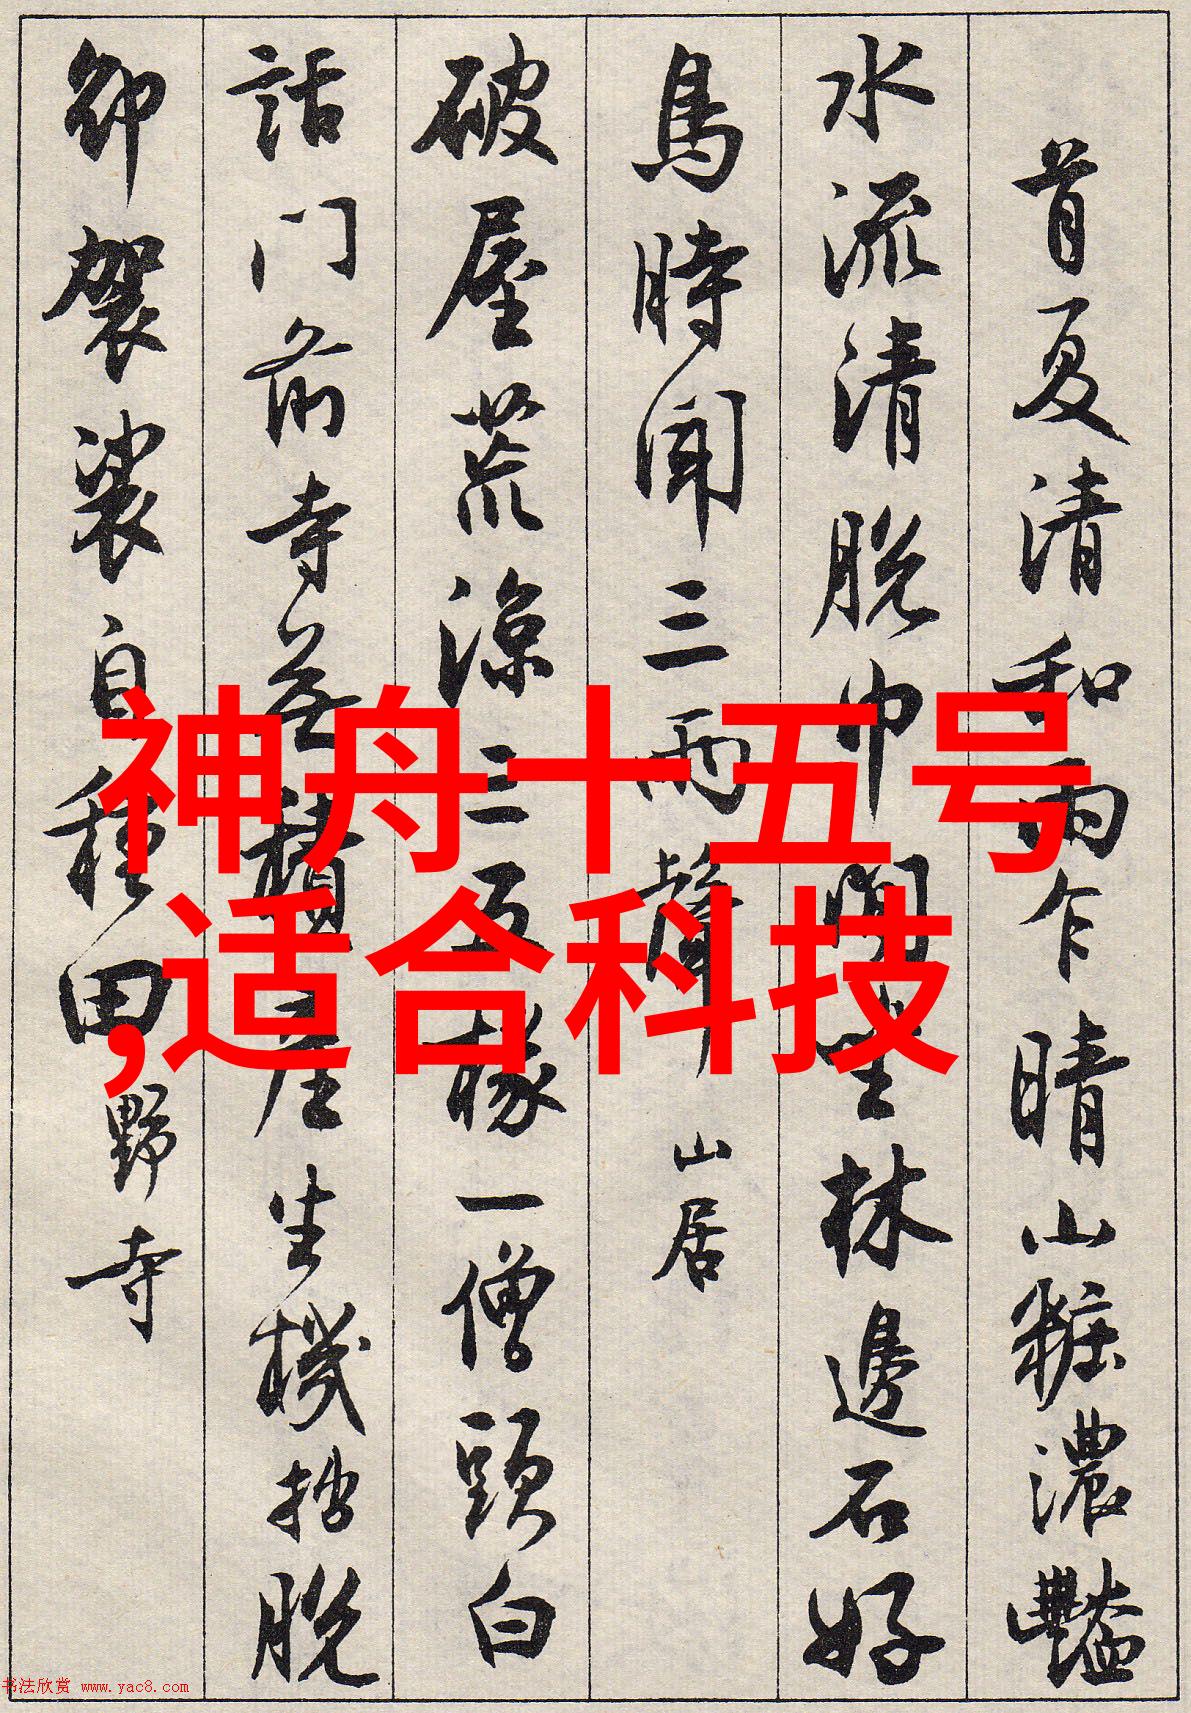 首夏清和雨乍晴山粧濃豔
水流清脱巾閒坐林邊石好
鳥時聞三兩聲 山居
破屋荒涼三五椽一僧頭白
話门前寺無積産生機拙脱
卻袈裟自種田 野寺
神舟十五号
,适合科技
书法欣赏 www.yac8.com